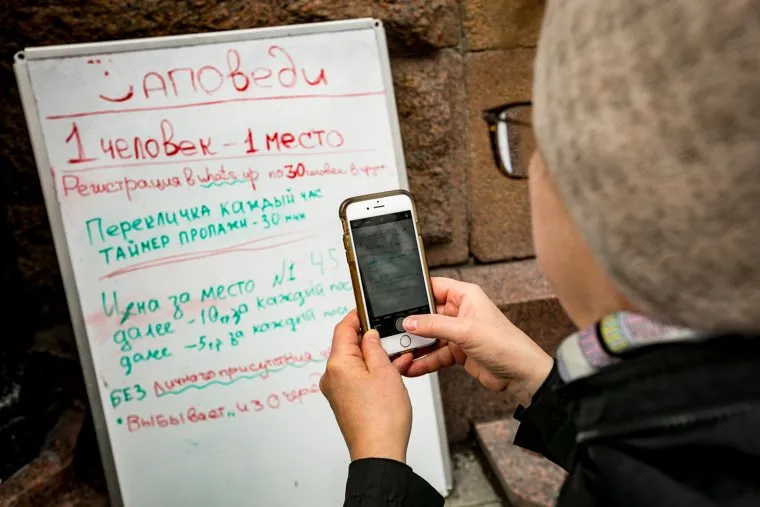 ЗАПОВЕДИ
1 человек - 1 место
Регистрация в whats up по 30 человек в групп
Перекличка каждый час
Таймер пропажи - 30 мин
Цена за место №1 45
далее - 10р за каждый пос
далее - 5р за каждый посл
БЕЗ личного присутствия
Выбывает из очеред